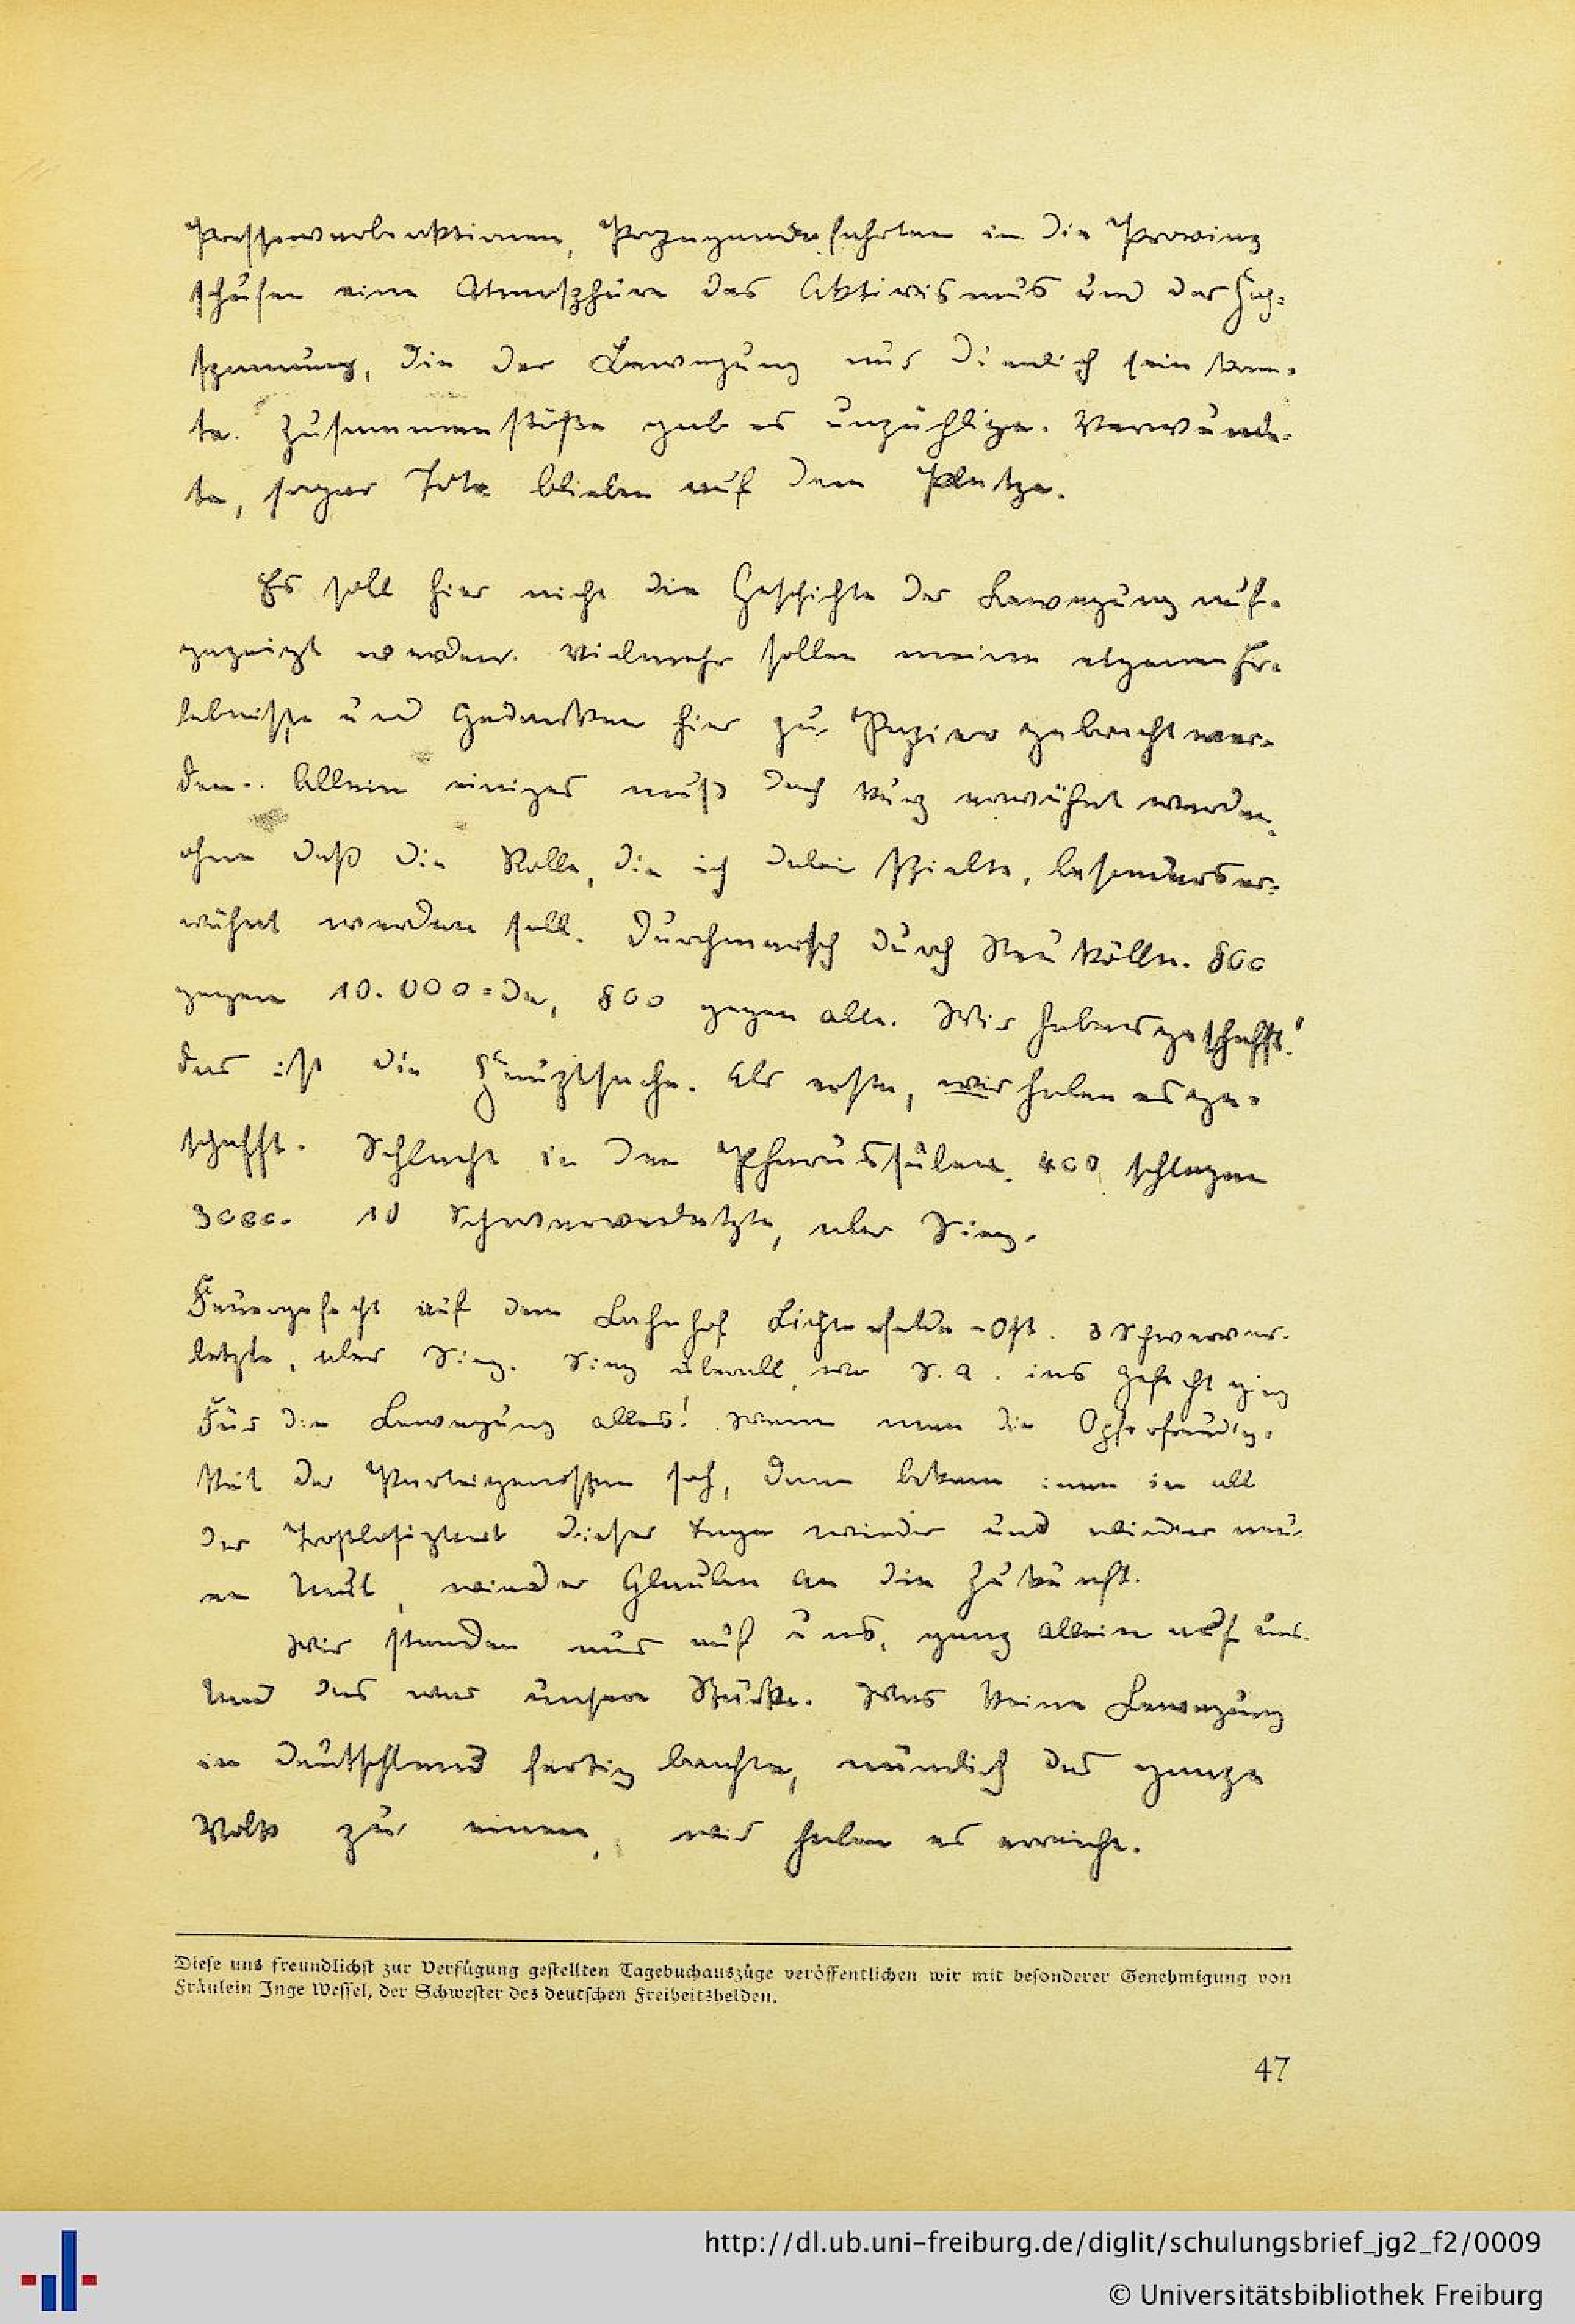 Pressewerbeaktionen, Propagandafahrten in die Provinz
schufen eine Atmosphäre des Aktivismus und der Hoch-
spannung, die der Bewegung nur dienlich sein konn-
te. Zusammenstöße gab es unzählige. Verwunde-
te, sogar Tote blieben auf dem Platze.
Es soll hier nicht die Geschichte der Bewegung auf-
gezeigt werden. Vielmehr sollen meine eigenen Er-
lebnisse und Gedanken hier zu Papier gebracht wer-
den. Allein einiges muß doch kurz erwähnt werden,
ohne daß die Rolle, die ich dabei spielte, besonders er-
wähnt werden soll. Durchmarsch durch Neukölln. 800
gegen 10.000 = de, 800 gegen alle. Wir haben's geschafft!
das ist die Hauptsache. Als erste, wir haben es ge-
schafft. Schlacht in den Pharussälen. 400 schlagen
3000. 10 Schwerverletzte, aber Sieg.
Feuergefecht auf dem Bahnhof Lichterfelde-Ost. 3 Schwerver-
letzte, aber Sieg. Sieg überall, wo S.A. ins Gefecht ging
Für die Bewegung alles! Wenn man die Opferfreudig-
keit der Parteigenossen sah, dann bekam man in all
der Trostlosigkeit dieser Tage wieder und wieder neu-
en Mut, wieder Glauben an die Zukunft.
Wir standen nur auf uns, ganz allein auf uns.
Und das war unsere Stärke. Was keine Bewegung
in Deutschland fertig brachte, nämlich das ganze
Volk zu einen, wir haben es erreicht.
Diese uns freundlichst zur Verfügung gestellten Tagebuchauszüge veröffentlichen wir mit besonderer Genehmigung von
Fräulein Inge Wessel, der Schwester des deutschen Freiheitshelden.
47
http://dl.ub.uni-freiburg.de/diglit/schulungsbrief_jg2_f2/0009
© Universitätsbibliothek Freiburg